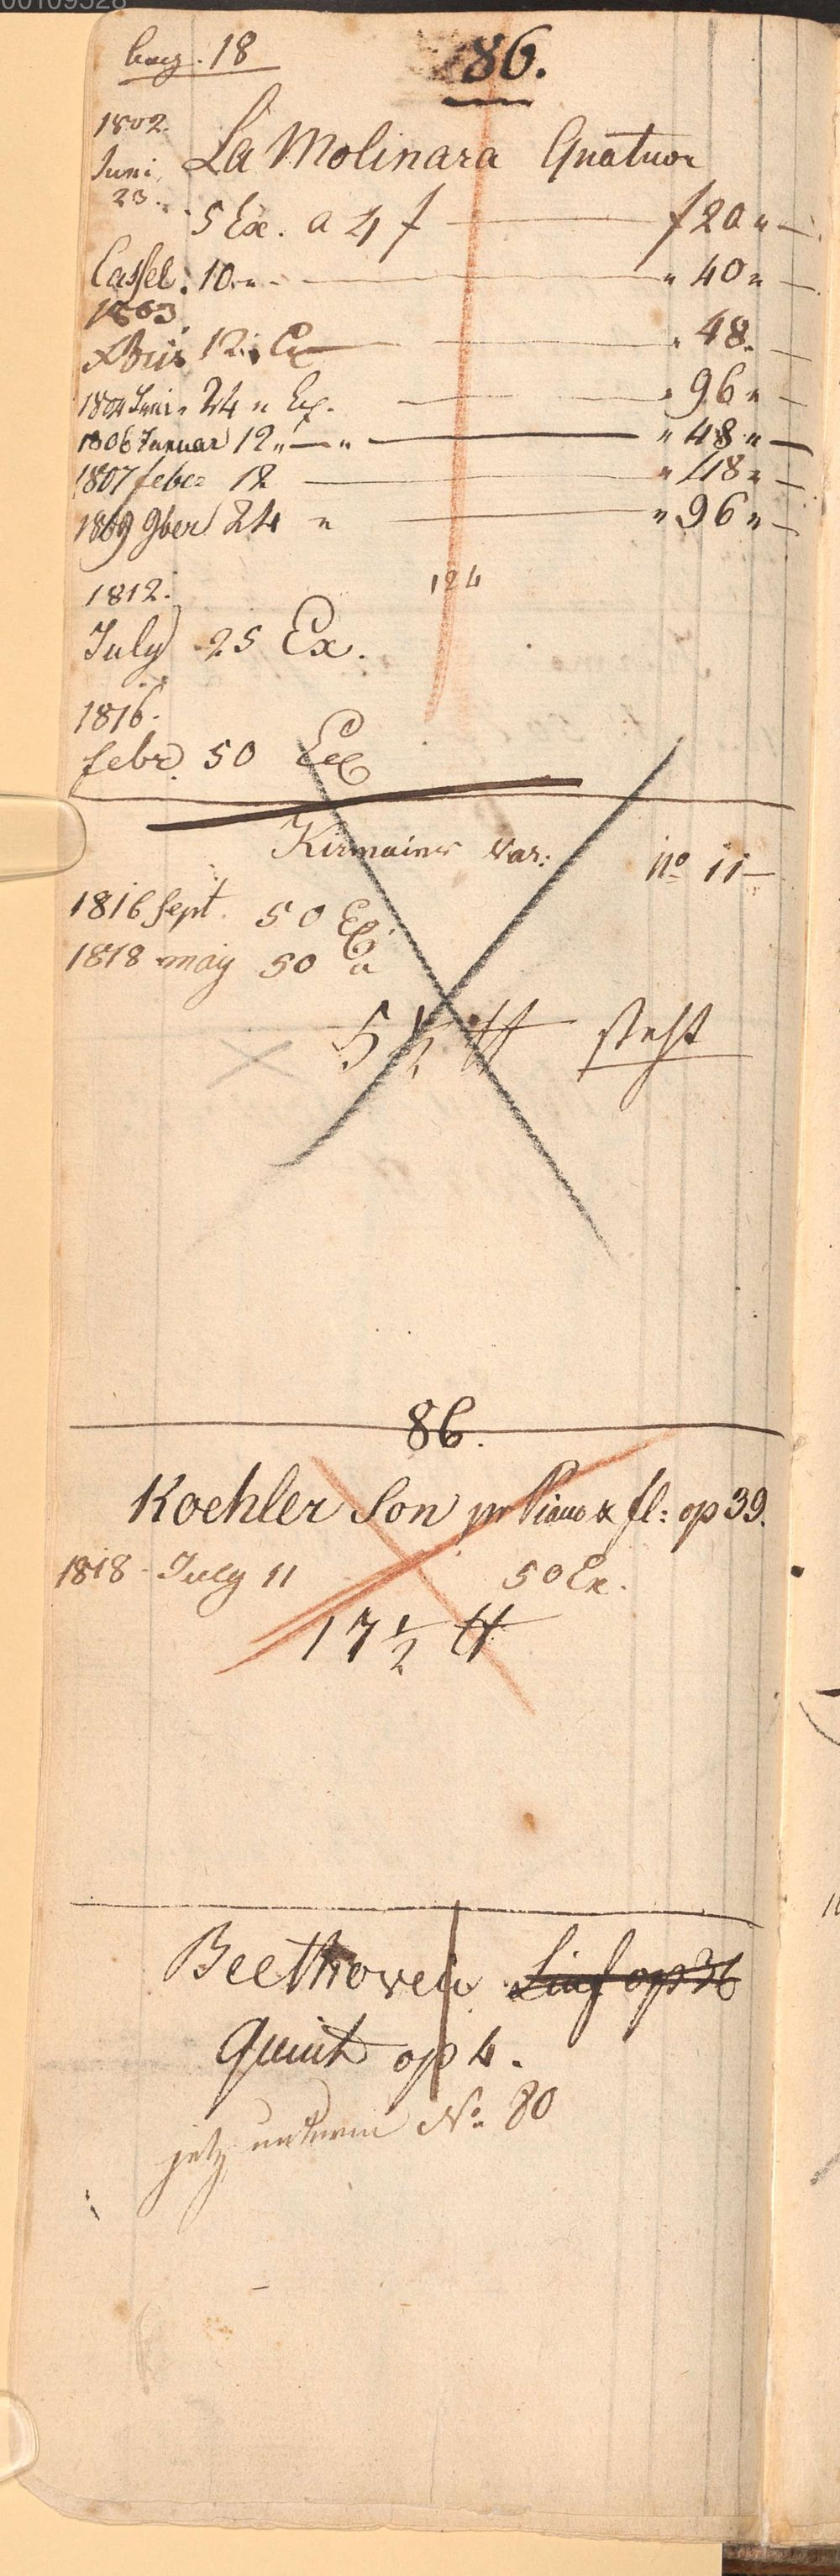 bog. 18
86.
1802.
Juni 23. La Molinara Quatuor
5 Ex. a 4 f f 20 "
Cassel. 10 " " 40 "
1803.
Xbris 12 Ex " 48 "
1804 Juni 24 " Ex. " 96 "
1806 Januar 12 " — " " 48 "
1807 feber 12 " 48 "
1809 9ber 24 " " 96 "
124
1812.
July 25 Ex.
1816.
febr. 50 Ex
Kirmairs Var: No 11
1816 Sept. 50 Ex
1818 may 50 "
5 1/2 ℔ steht
86.
Koehler Son pr Piano & fl: op 39.
1818 July 11 50 Ex.
17 1/2 ℔
Beethoven Sinf op 36
Quint op 4.
jetz unterm No 80